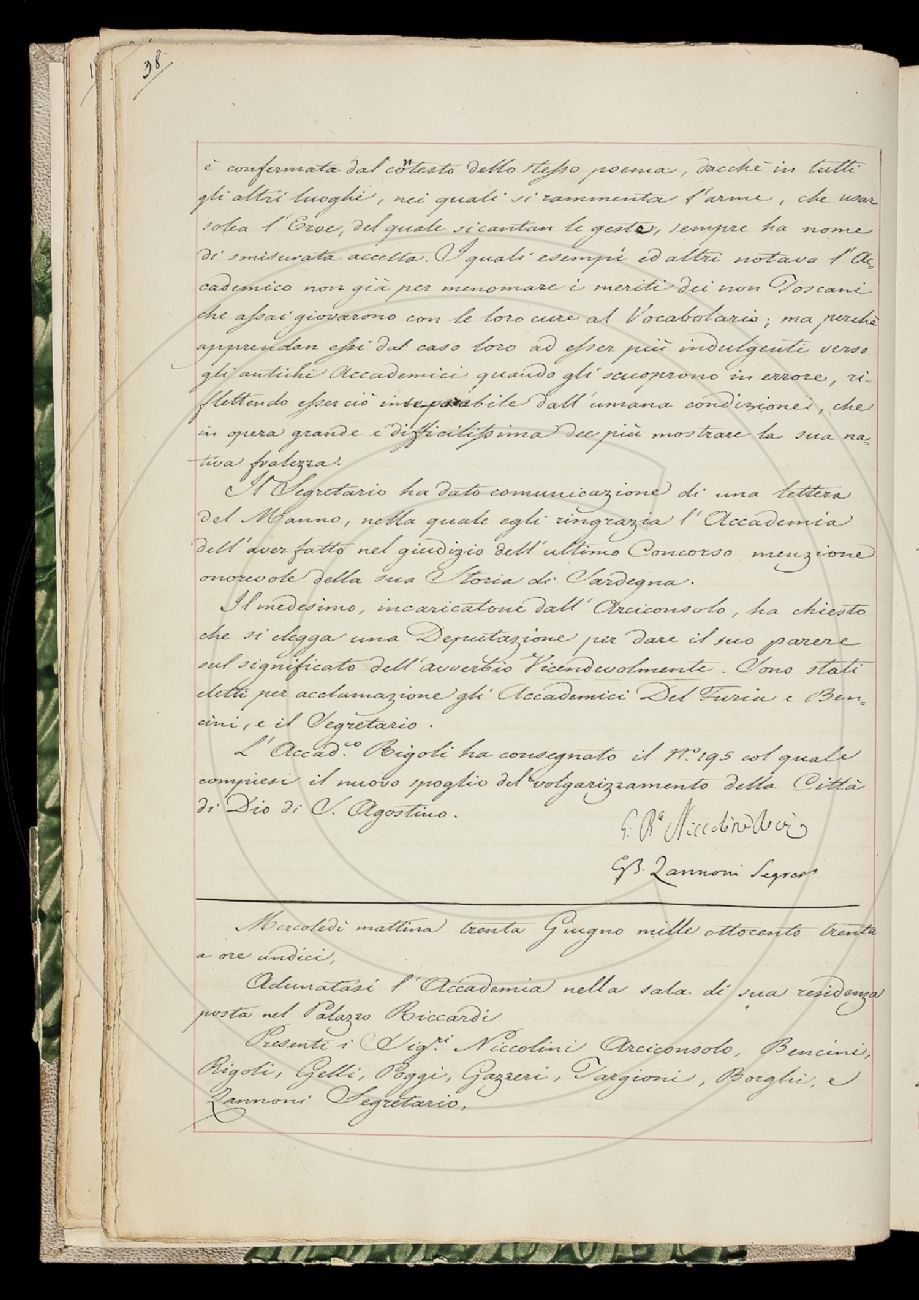 38
è confermata dal contesto dello stesso poema, dacchè in tutti
gli altri luoghi, nei quali si rammenta l'arme, che usar
solea l'Eroe, del quale si cantan le geste, sempre ha nome
di smisurata accetta. I quali esempi ed altri notava l'Ac=
cademico non già per menomare i meriti dei non Toscani
che assai giovarono con le loro cure al Vocabolario; ma perchè
apprendan essi dal caso loro ad esser più indulgenti verso
gli antichi Accademici quando gli scuoprono in errore, ri=
flettendo esser ciò inseparabile dall'umana condizione, che
in opera grande e difficilissima dee più mostrare la sua na=
tiva fralezza.
Il Segretario ha dato comunicazione di una lettera
del Manno, nella quale egli ringrazia l'Accademia
dell'aver fatto nel giudizio dell'ultimo Concorso menzione
onorevole della sua Storia di Sardegna.
Il medesimo, incaricatone dall'Arciconsolo, ha chiesto
che si elegga una Deputazione per dare il suo parere
sul significato dell'avverbio Vicendevolmente. Sono stati
eletti per acclamazione gli Accademici Del Furia e Ben=
cini, e il Segretario.
L'Accad.co Rigoli ha consegnato il N.o 195 col quale
compiesi il nuovo spoglio del volgarizzamento della Città
di Dio di S. Agostino.
G. Ba Niccolini Arci
G.B. Zannoni Segret
Mercoledì mattina trenta Giugno mille ottocento trenta
a ore undici,
Adunatasi l'Accademia nella sala di sua residenza
posta nel Palazzo Riccardi
Presenti i Sigri Niccolini Arciconsolo, Bencini,
Rigoli, Gelli, Poggi, Gazzeri, Targioni, Borghi, e
Zannoni Segretario.